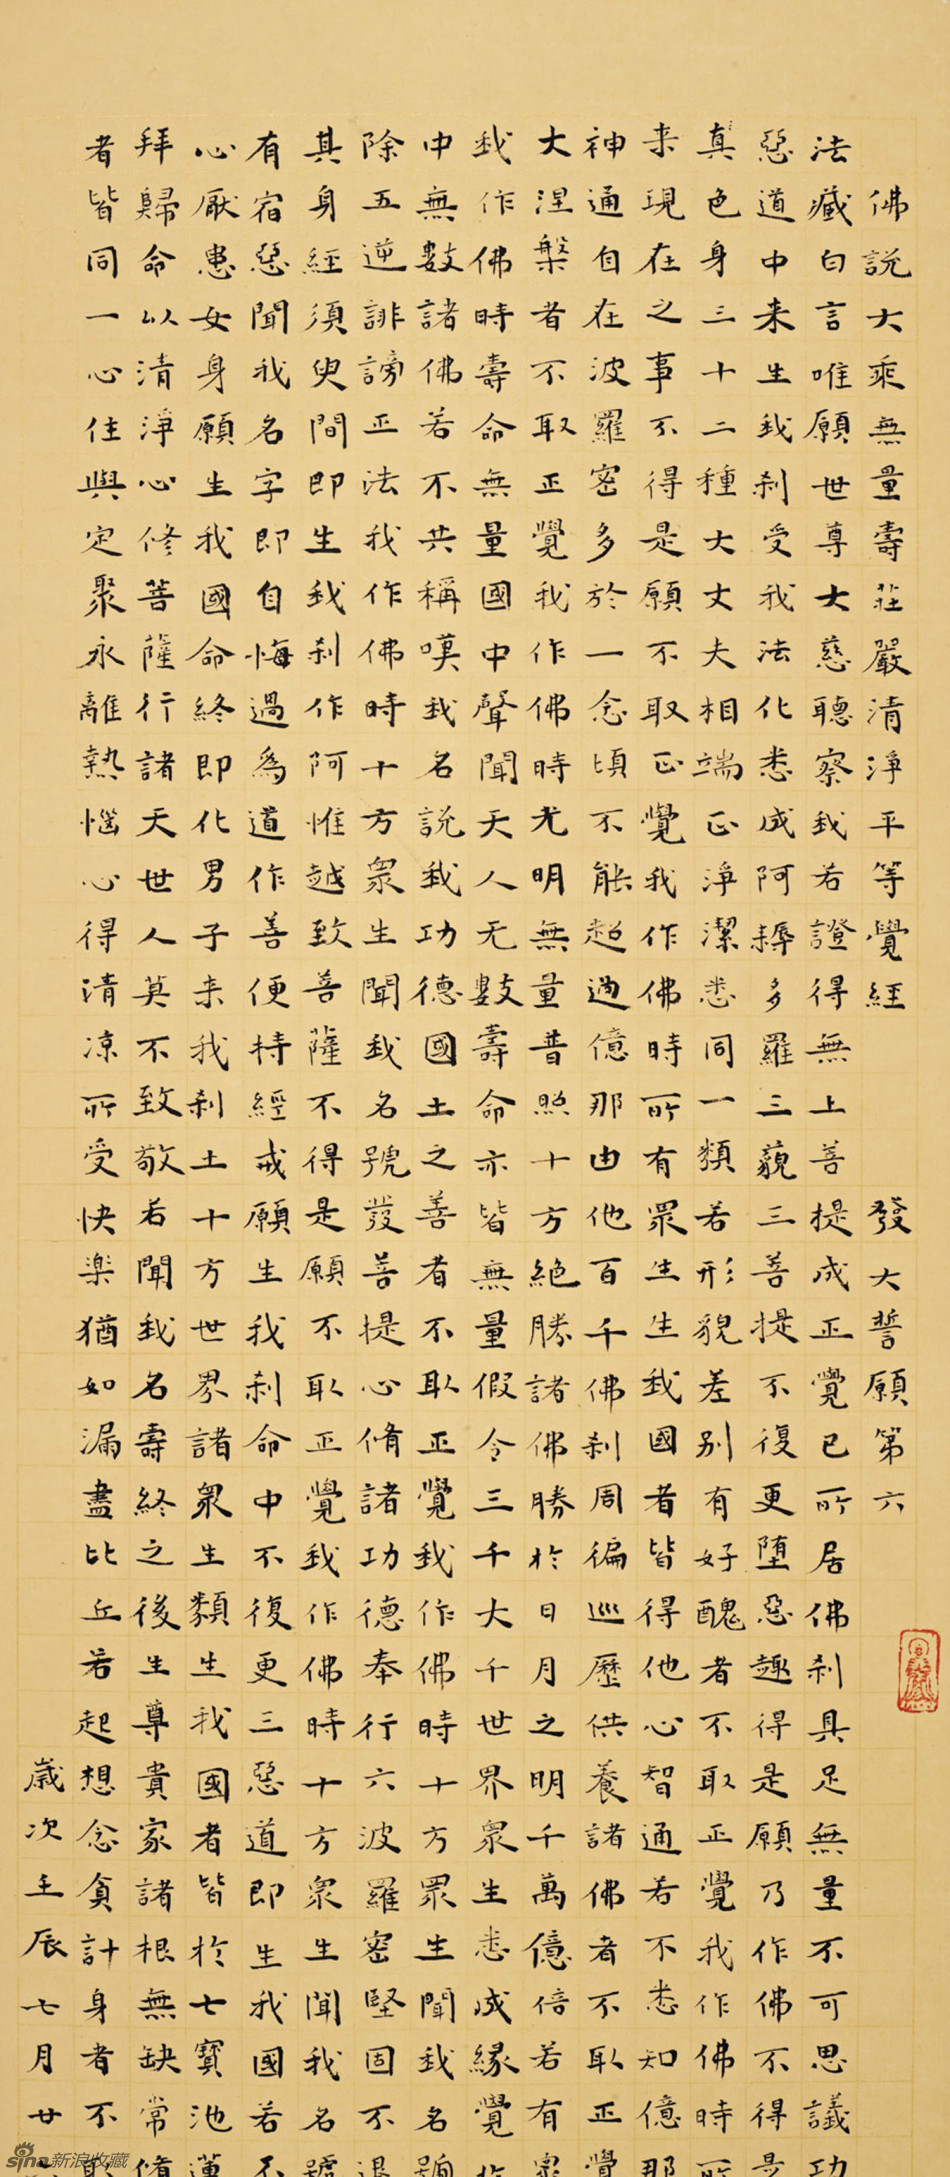 佛說大乘無量壽莊嚴清淨平等覺經 發大誓願第六
法藏白言唯願世尊大慈聽察我若證得無上菩提成正覺已所居佛剎具足無量不可思議功
惡道中来生我剎受我法化悉成阿耨多羅三藐三菩提不復更墮惡趣得是願乃作佛不得是
真色身三十二種大丈夫相端正淨潔悉同一類若形貌差別有好醜者不取正覺我作佛時所
来現在之事不得是願不取正覺我作佛時所有眾生生我國者皆得他心智通若不悉知億那
神通自在波羅密多於一念頃不能超過億那由他百千佛剎周徧巡歷供養諸佛者不取正覺
大涅槃者不取正覺我作佛時光明無量普照十方絕勝諸佛勝於日月之明千萬億倍若有眾
我作佛時壽命無量國中聲聞天人无數壽命亦皆無量假令三千大千世界眾生悉成緣覺於
中無數諸佛若不共稱嘆我名說我功德國土之善者不取正覺我作佛時十方眾生聞我名號
除五逆誹謗正法我作佛時十方眾生聞我名號發菩提心脩諸功德奉行六波羅密堅固不退
其身經須臾間即生我剎作阿惟越致菩薩不得是願不取正覺我作佛時十方眾生聞我名號
有宿惡聞我名字即自悔過為道作善便持經戒願生我剎命中不復更三惡道即生我國若不
心厭患女身願生我國命終即化男子来我剎土十方世界諸眾生類生我國者皆於七寶池蓮
拜歸命以清淨心修菩薩行諸天世人莫不致敬若聞我名壽終之後生尊貴家諸根無缺常脩
者皆同一心住與定聚永離熱惱心得清涼所受快樂猶如漏盡比丘若起想念貪計身者不取
歲次壬辰七月廿
sina新浪收藏